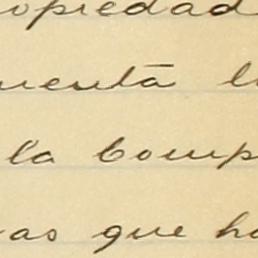 opiedad
uenta l
la comp
as que ha